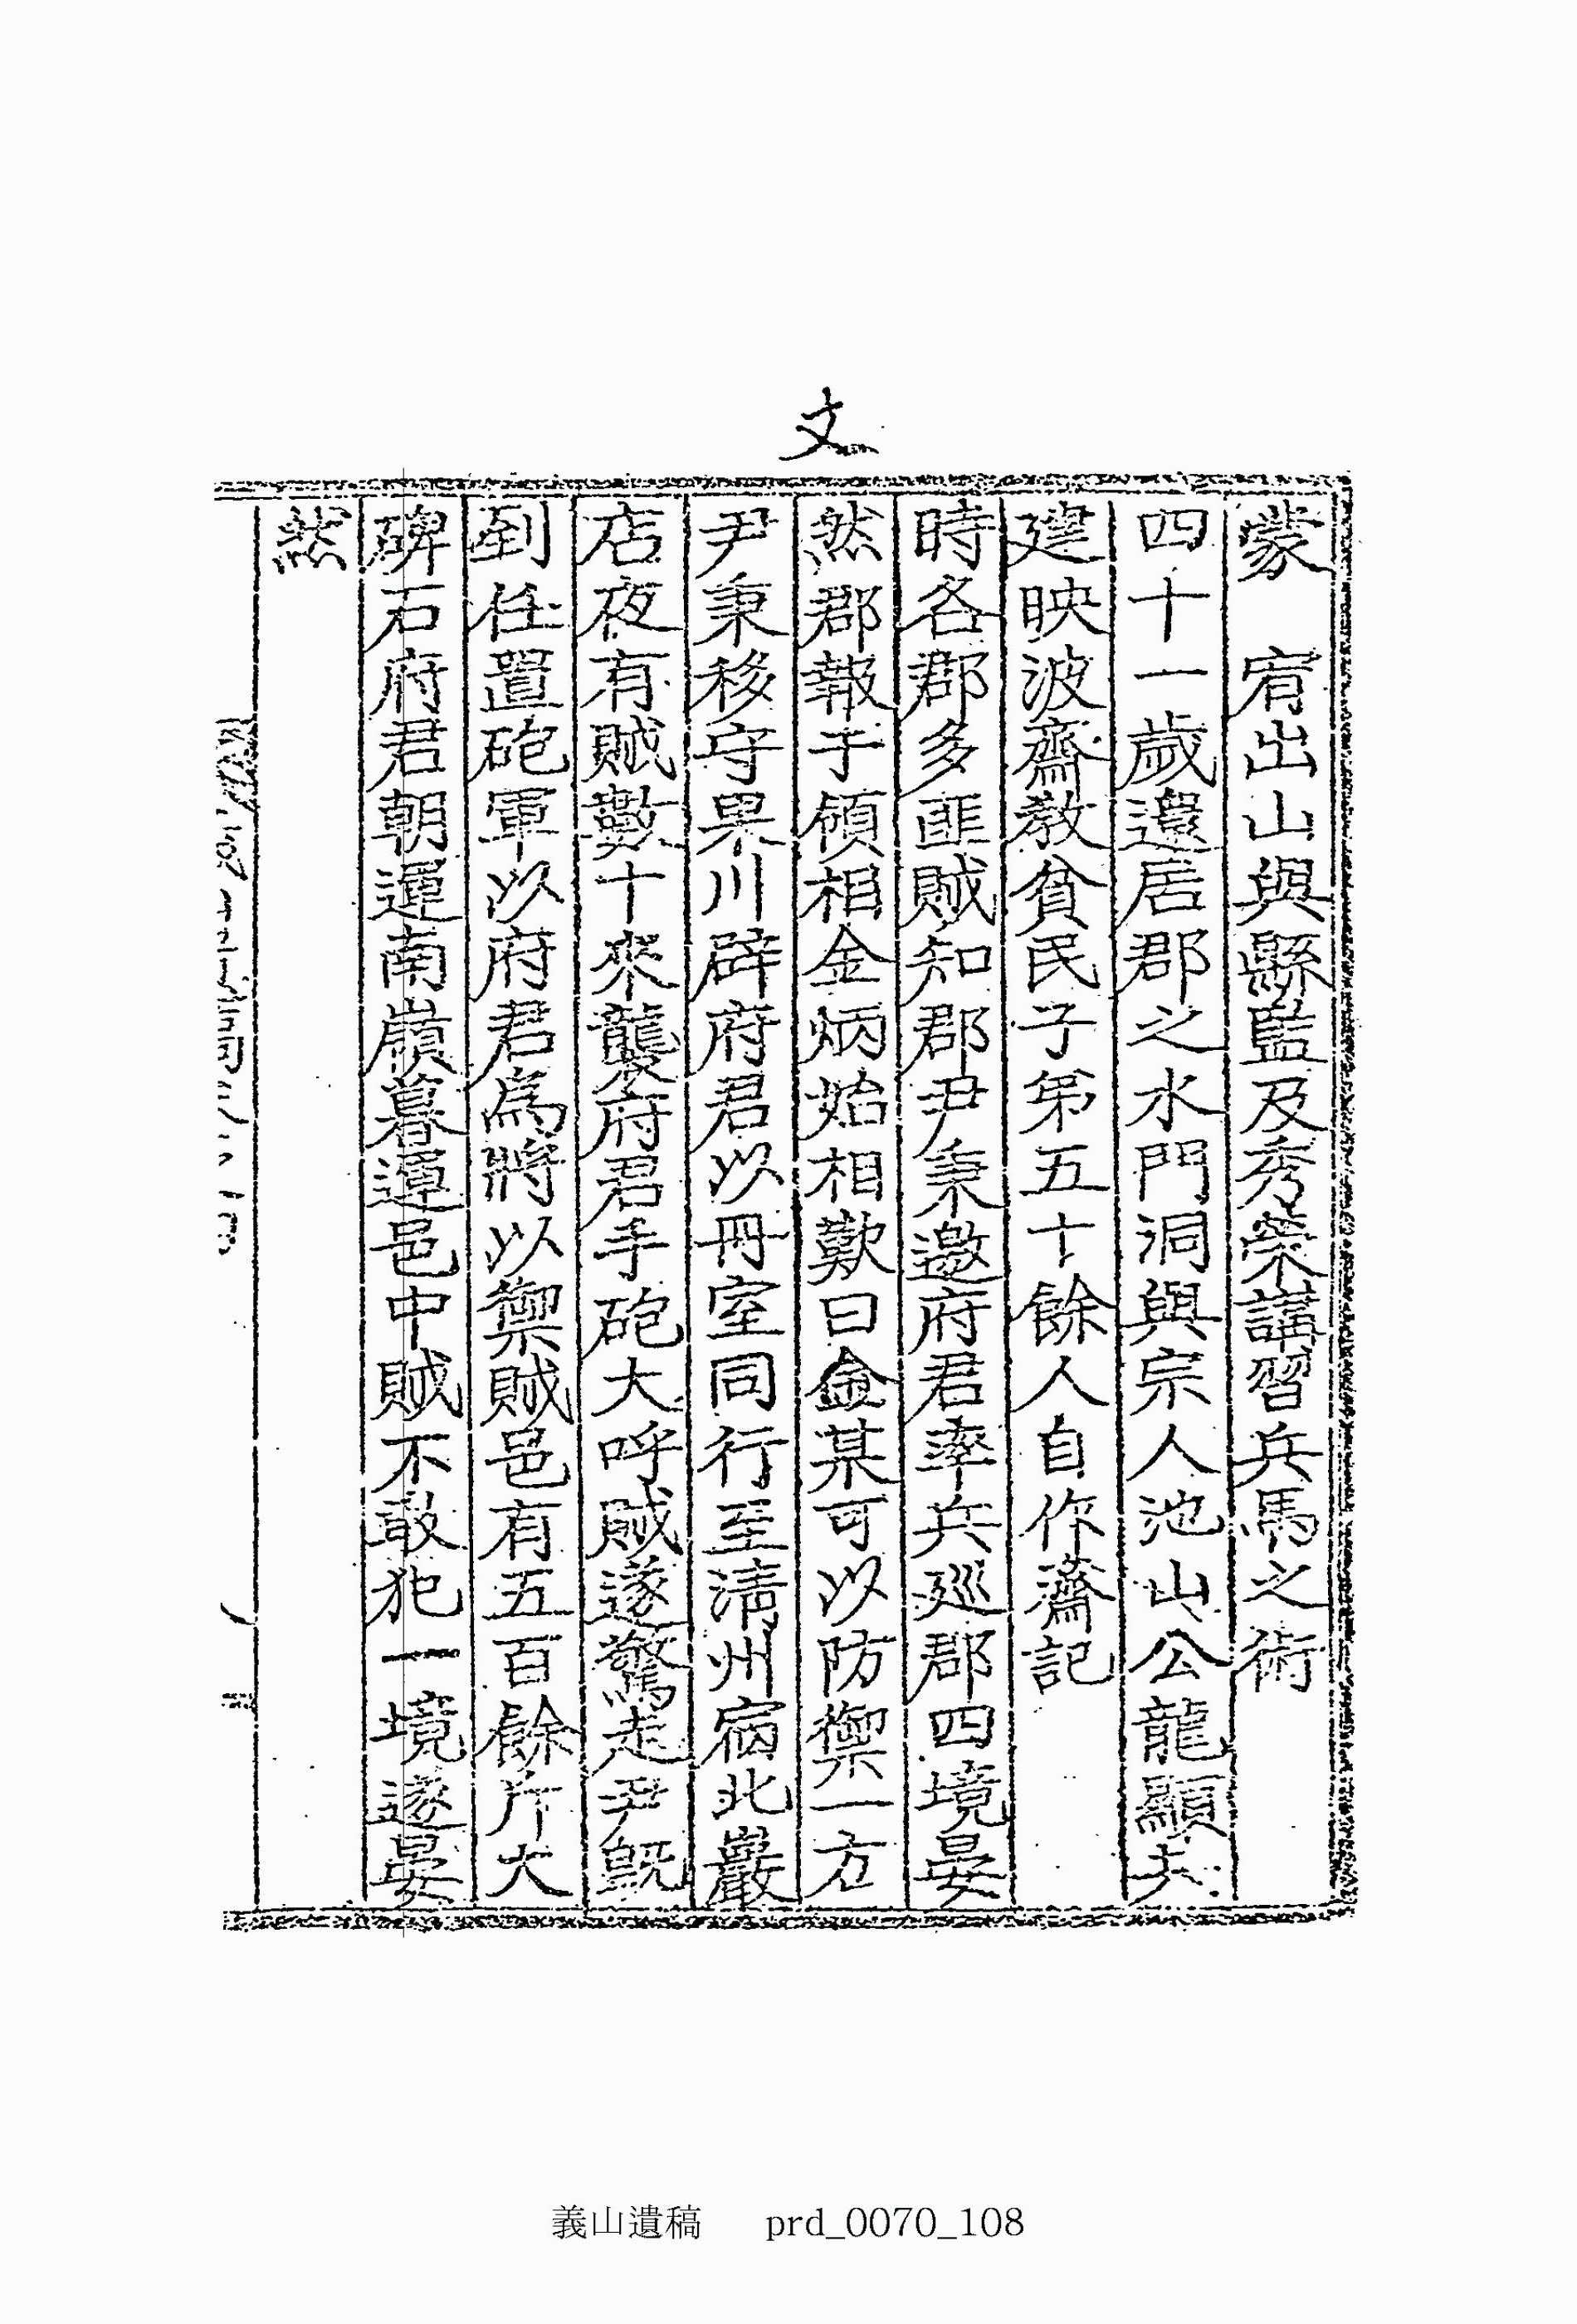 文
蒙　宥出山與縣監及秀榮講習兵馬之術
四十一歲還居郡之水門洞與宗人池山公龍顯夫
建映波齋敎貧民子弟五十餘人自作齋記
時各郡多匪賊知郡尹秉邀府君率兵巡郡四境晏
然郡報于領相金炳始相歎曰金某可以防禦一方
尹秉移守果川辟府君以冊室同行至淸州宿北巖
店夜有賊數十來襲府君手砲大呼賊遂驚走尹旣
到任置砲軍以府君爲將以禦賊邑有五百餘斤大
碑石府君朝運南嶺暮運邑中賊不敢犯一境遂晏
然
義山遺稿　prd_0070_108